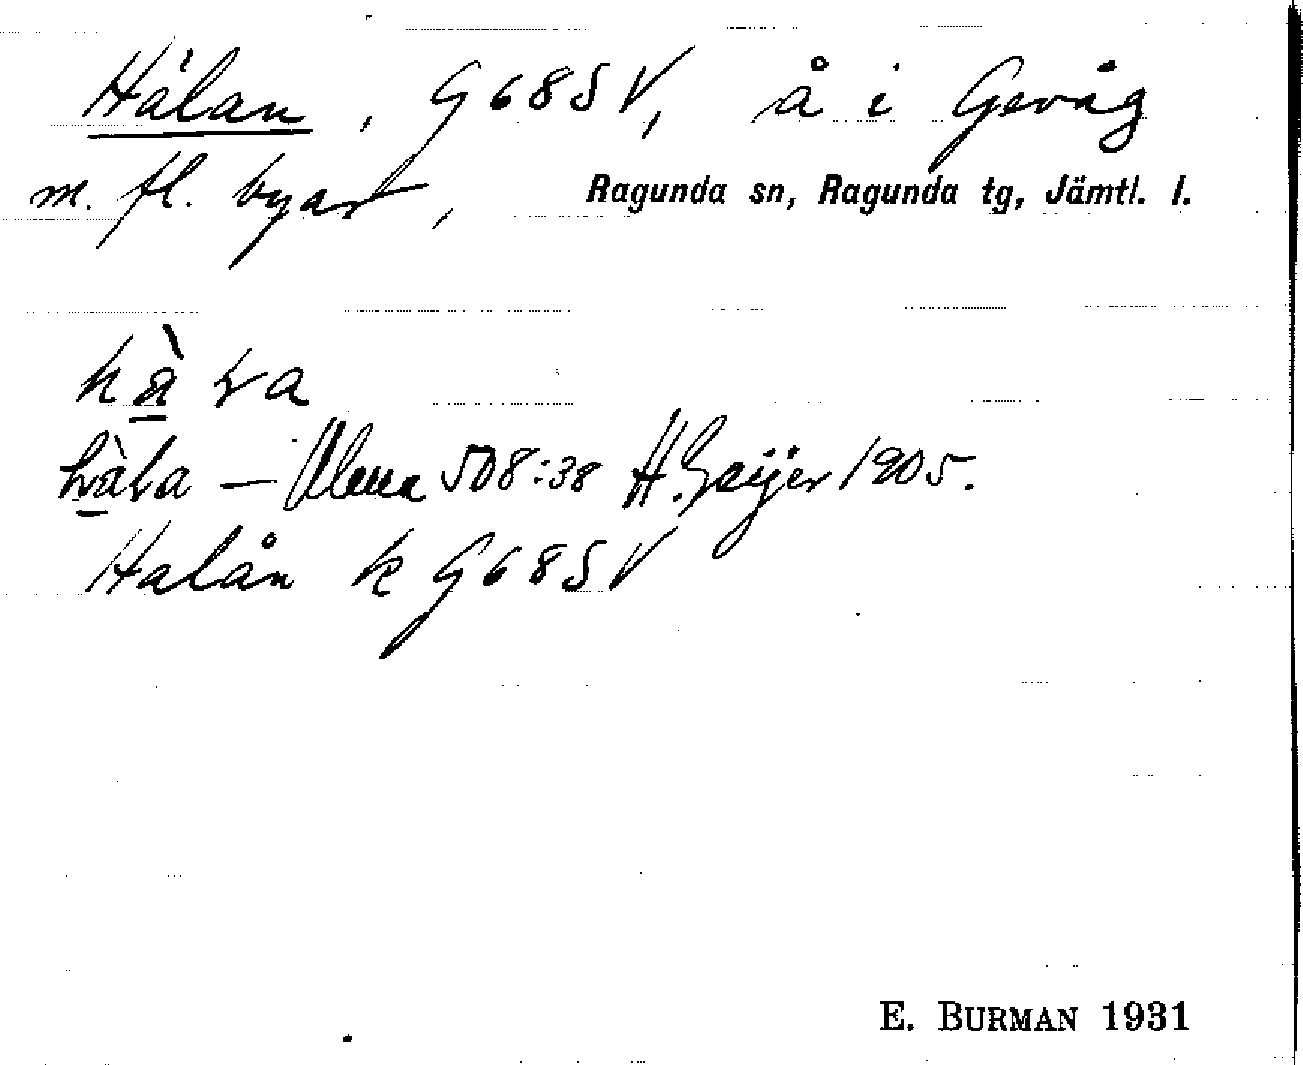 Hälan, G68SV, å i Gevåg
m. fl. byar, Ragunda sn, Ragunda tg, Jämtl. l.
hàɽa
hàɽa – Ulma 508:38 H. Geijer 1905.
Halån k G68SV
E. BURMAN 1931